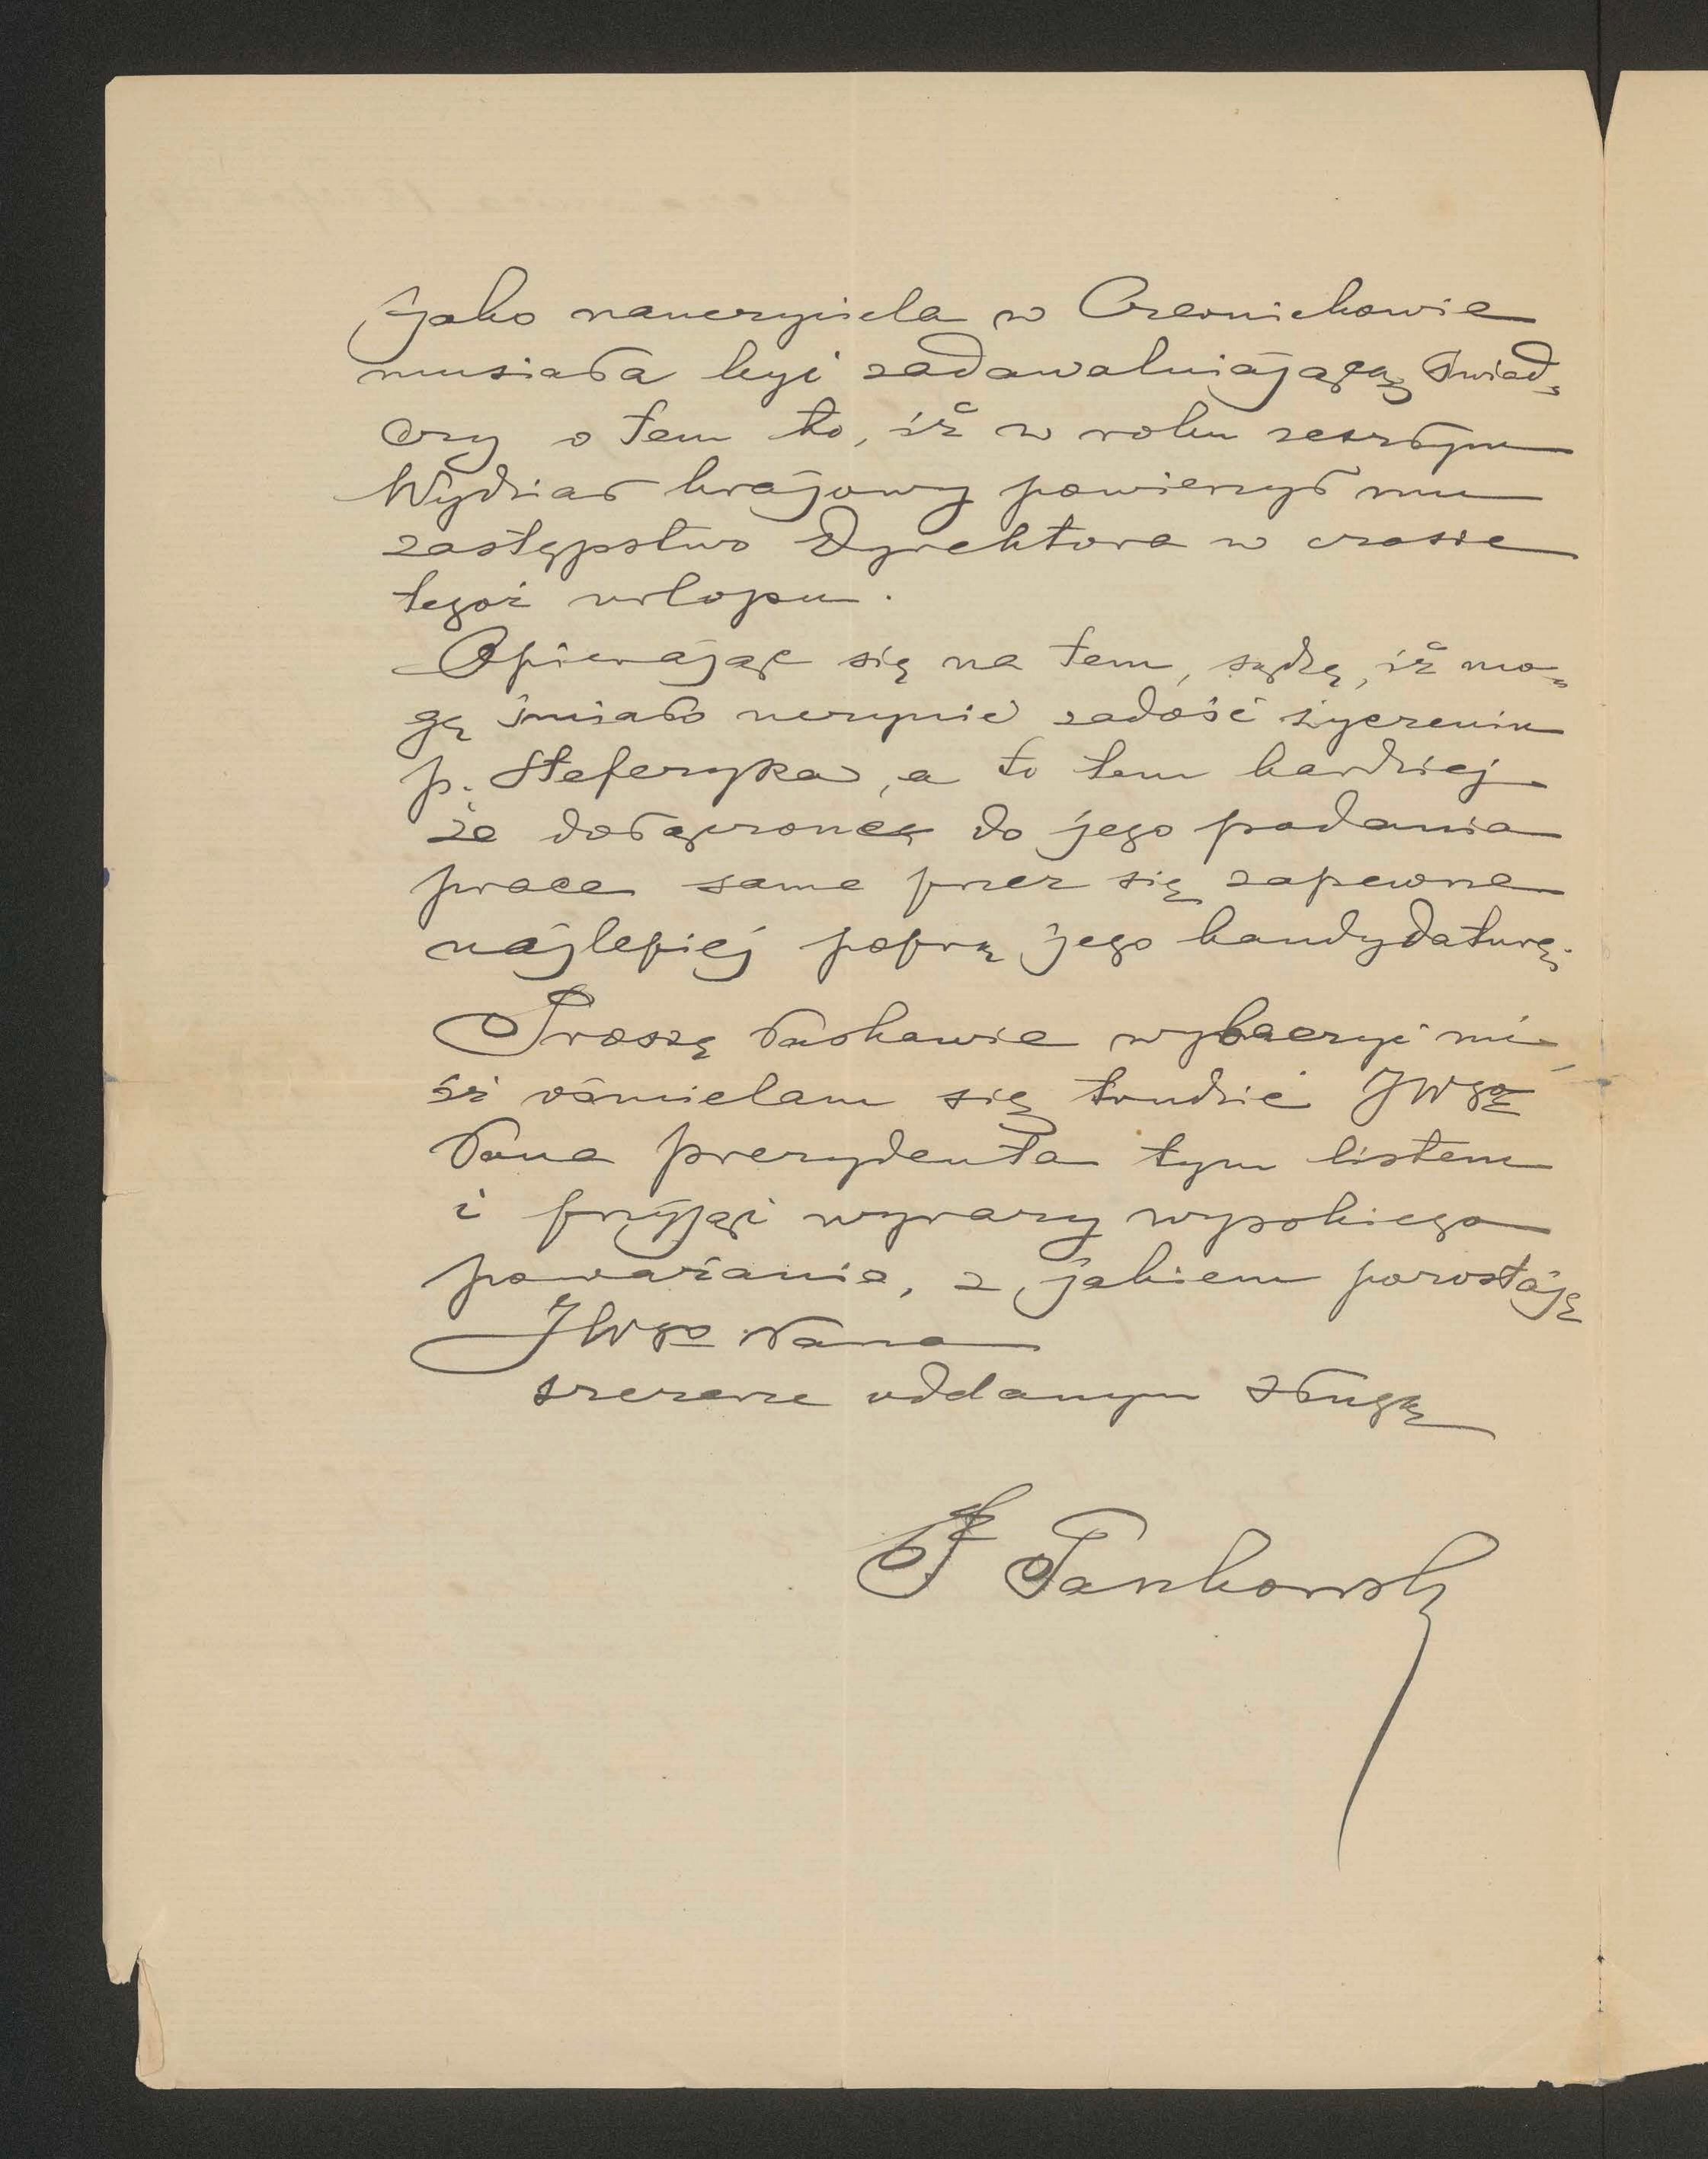 jako nauczyciela w Czernichowie
musiała być zadawalniającą świad-
czy o tem to, iż w roku zeszłym
Wydział krajowy powierzył mu
zastępstwo Dyrektora w czasie
tegoż urlopu.
Opierając się na tem, sądzę, iż mo-
gę śmiało uczynić zadość życzeniu
p. Stefczyka, a to tem bardziej
że dołączone do jego podania
prace same przez się zapewne
najlepiej poprą jego kandydaturę.
Proszę łaskawie wybaczyć mi
iż ośmielam się trudzić JWgo
Pana prezydenta tym listem
i przyjąć wyrazy wysokiego
poważania, z jakiem pozostaję
JWgo Pana
szczerze oddanym sługą